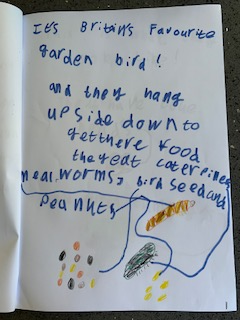 It's Britins Favourite
garden bird!
and they hang
upside down to
getthere food
they eat caterpillers
mealworms, bird seed and
peanuts
1